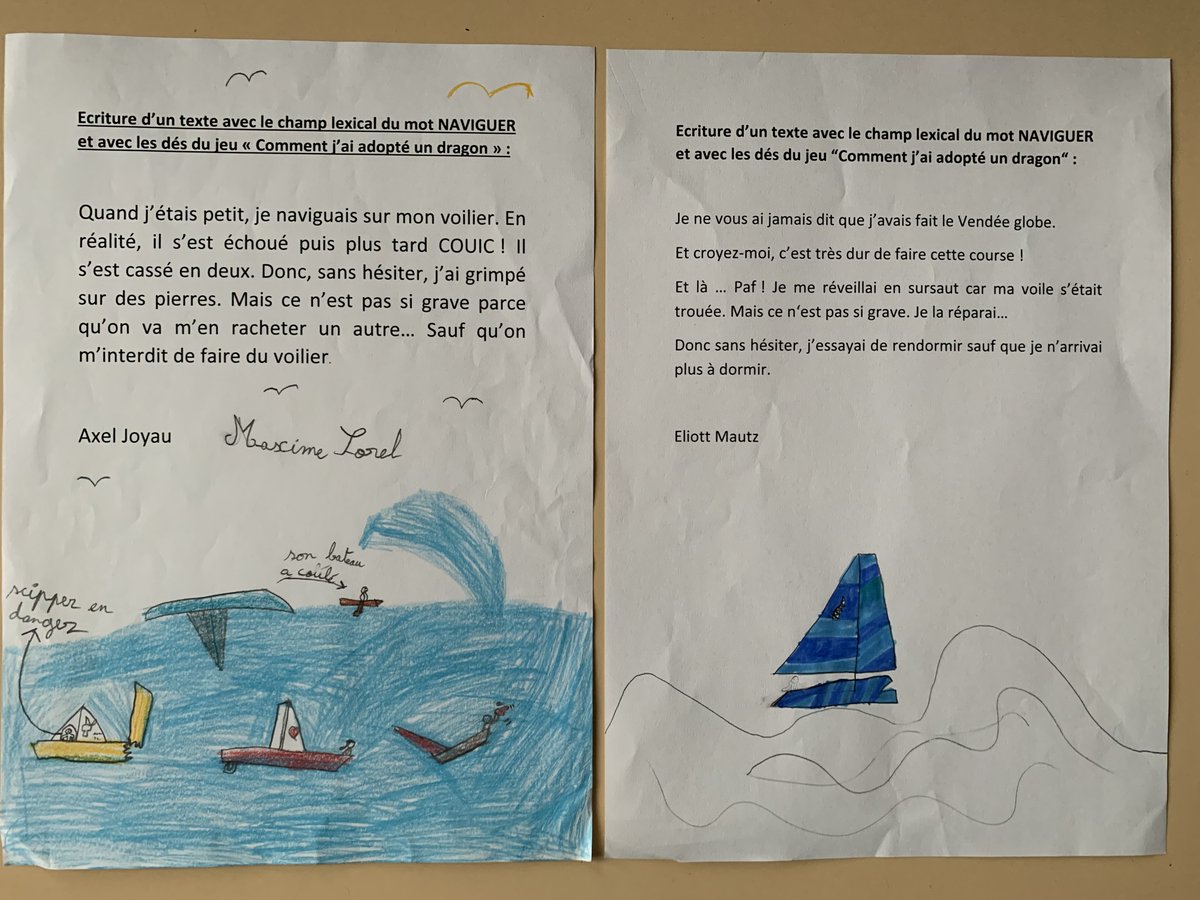 Ecriture d'un texte avec le champ lexical du mot NAVIGUER
et avec les dés du jeu « Comment j'ai adopté un dragon » :
Quand j'étais petit, je naviguais sur mon voilier. En
réalité, il s'est échoué puis plus tard COUIC ! Il
s'est cassé en deux. Donc, sans hésiter, j'ai grimpé
sur des pierres. Mais ce n'est pas si grave parce
qu'on va m'en racheter un autre... Sauf qu'on
m'interdit de faire du voilier.
Axel Joyau
Maxime Lorel
son bateau
a coulé
scipper en
danger
Ecriture d'un texte avec le champ lexical du mot NAVIGUER
et avec les dés du jeu "Comment j'ai adopté un dragon" :
Je ne vous ai jamais dit que j'avais fait le Vendée globe.
Et croyez-moi, c'est très dur de faire cette course !
Et là ... Paf ! Je me réveillai en sursaut car ma voile s'était
trouée. Mais ce n'est pas si grave. Je la réparai...
Donc sans hésiter, j'essayai de rendormir sauf que je n'arrivai
plus à dormir.
Eliott Mautz